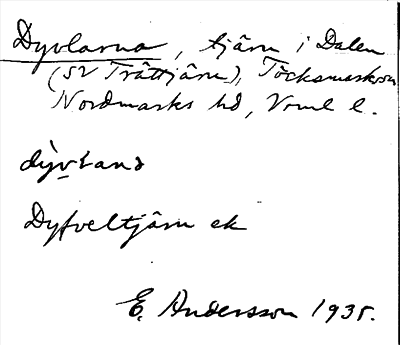 Dyvlarna, tjärn i Dalen
(SV Tråttjärn), Töcksmarks sn
Nordmarks hd, Vrml l.
dỳvlanə
Dyfveltjärn ek
E. Andersson 1935.